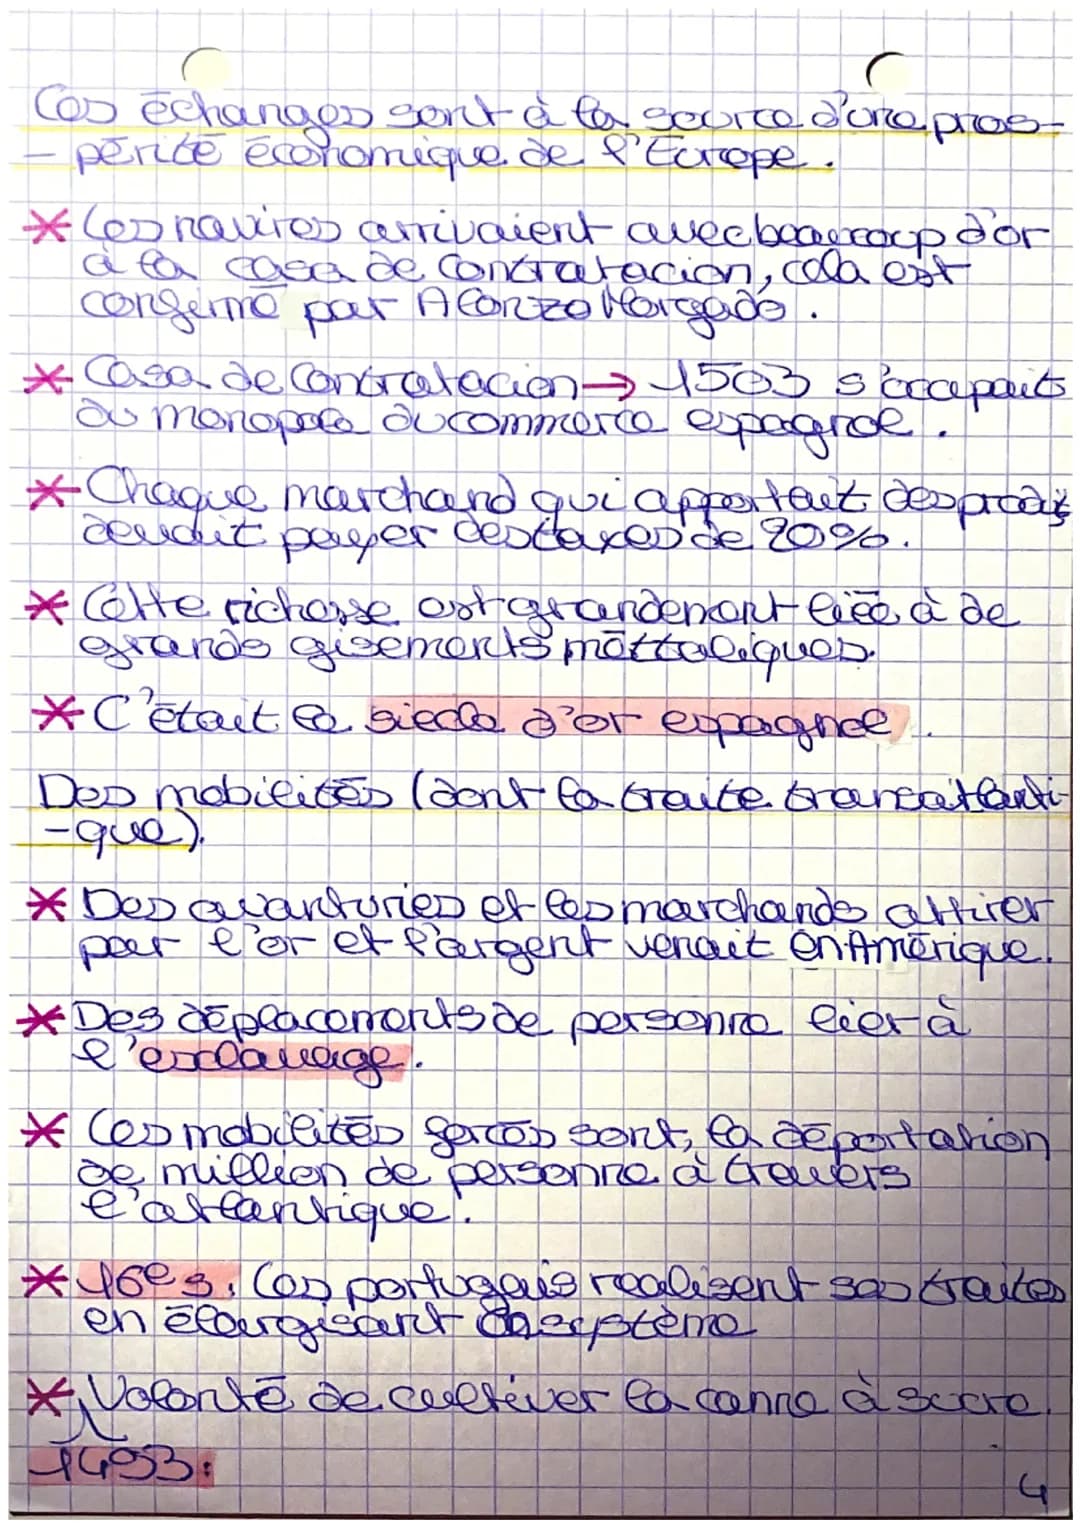 Ces échanges sont à la source d'une pros-
-périté économique de l'Europe.
* Les navires arrivaient avec beaucoup d'or
à la casa de Contratacion, cela est
confirmé par Alonzo Morgado.
* Casa de Contratacion → 1503 s'occupait
du monopole du commerce espagnol.
* Chaque marchand qui apportait des produits
devait payer des taxes de 20%.
* Cette richesse est grandement liée à de
grands gisements méttaliques.
* C'était le siecle d'or espagnol.
Des mobilités (dont la traite transatlanti-
-que).
* Des avanturies et les marchands attirer
par l'or et l'argent venait en Amérique.
* Des déplacements de personne lier à
l'esclavage.
* Ces mobilités forcés sont, la déportation
de million de personne à travers
l'atlantique.
* 16e s. Les portugais realisent ses traites
en élargisant ce système
* Volonté de cultiver la canne à sucre.
1493:
4